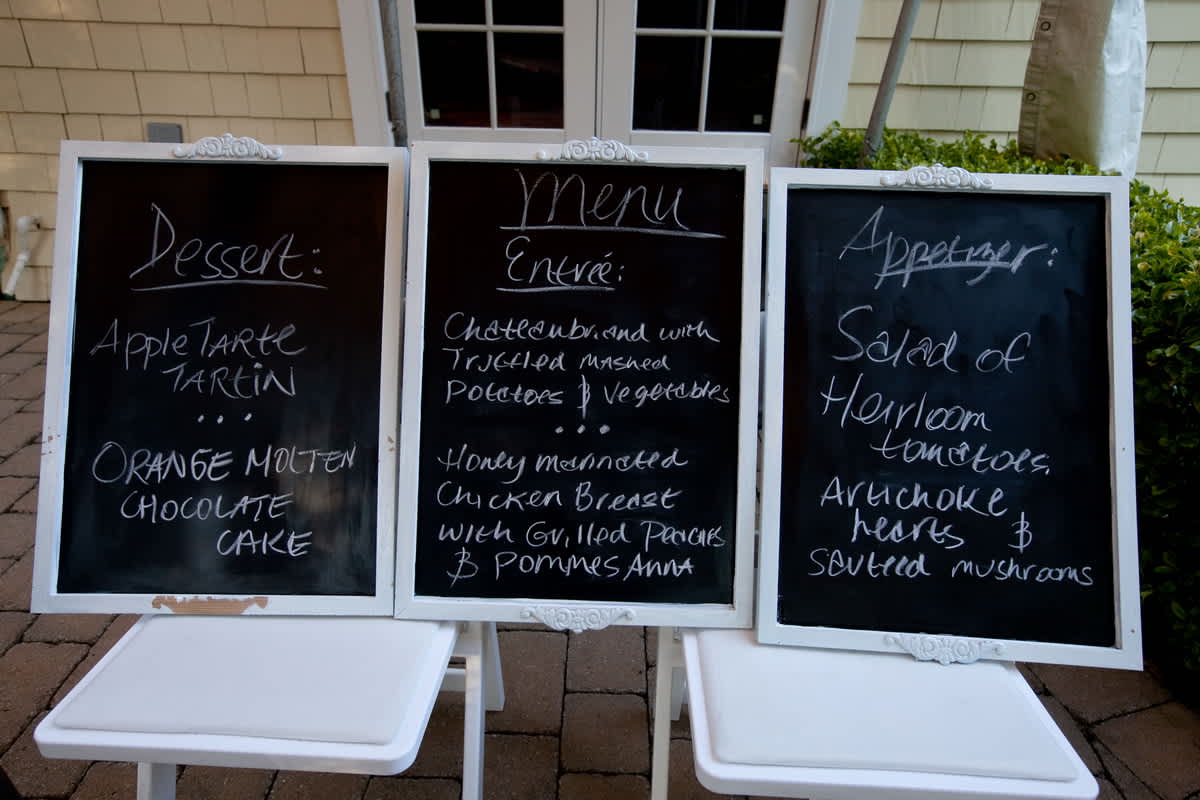 Dessert:
Apple Tarte
Tartin
...
ORANGE MOLTEN
CHOCOLATE
CAKE
Menu
Entrée:
Chateaubriand with
Truffled mashed
Potatoes & Vegetables
...
Honey marinated
Chicken Breast
with Grilled Peaches
& Pommes Anna
Appetizer:
Salad of
Heirloom
tomatoes.
Artichoke
hearts &
Sauteed mushrooms